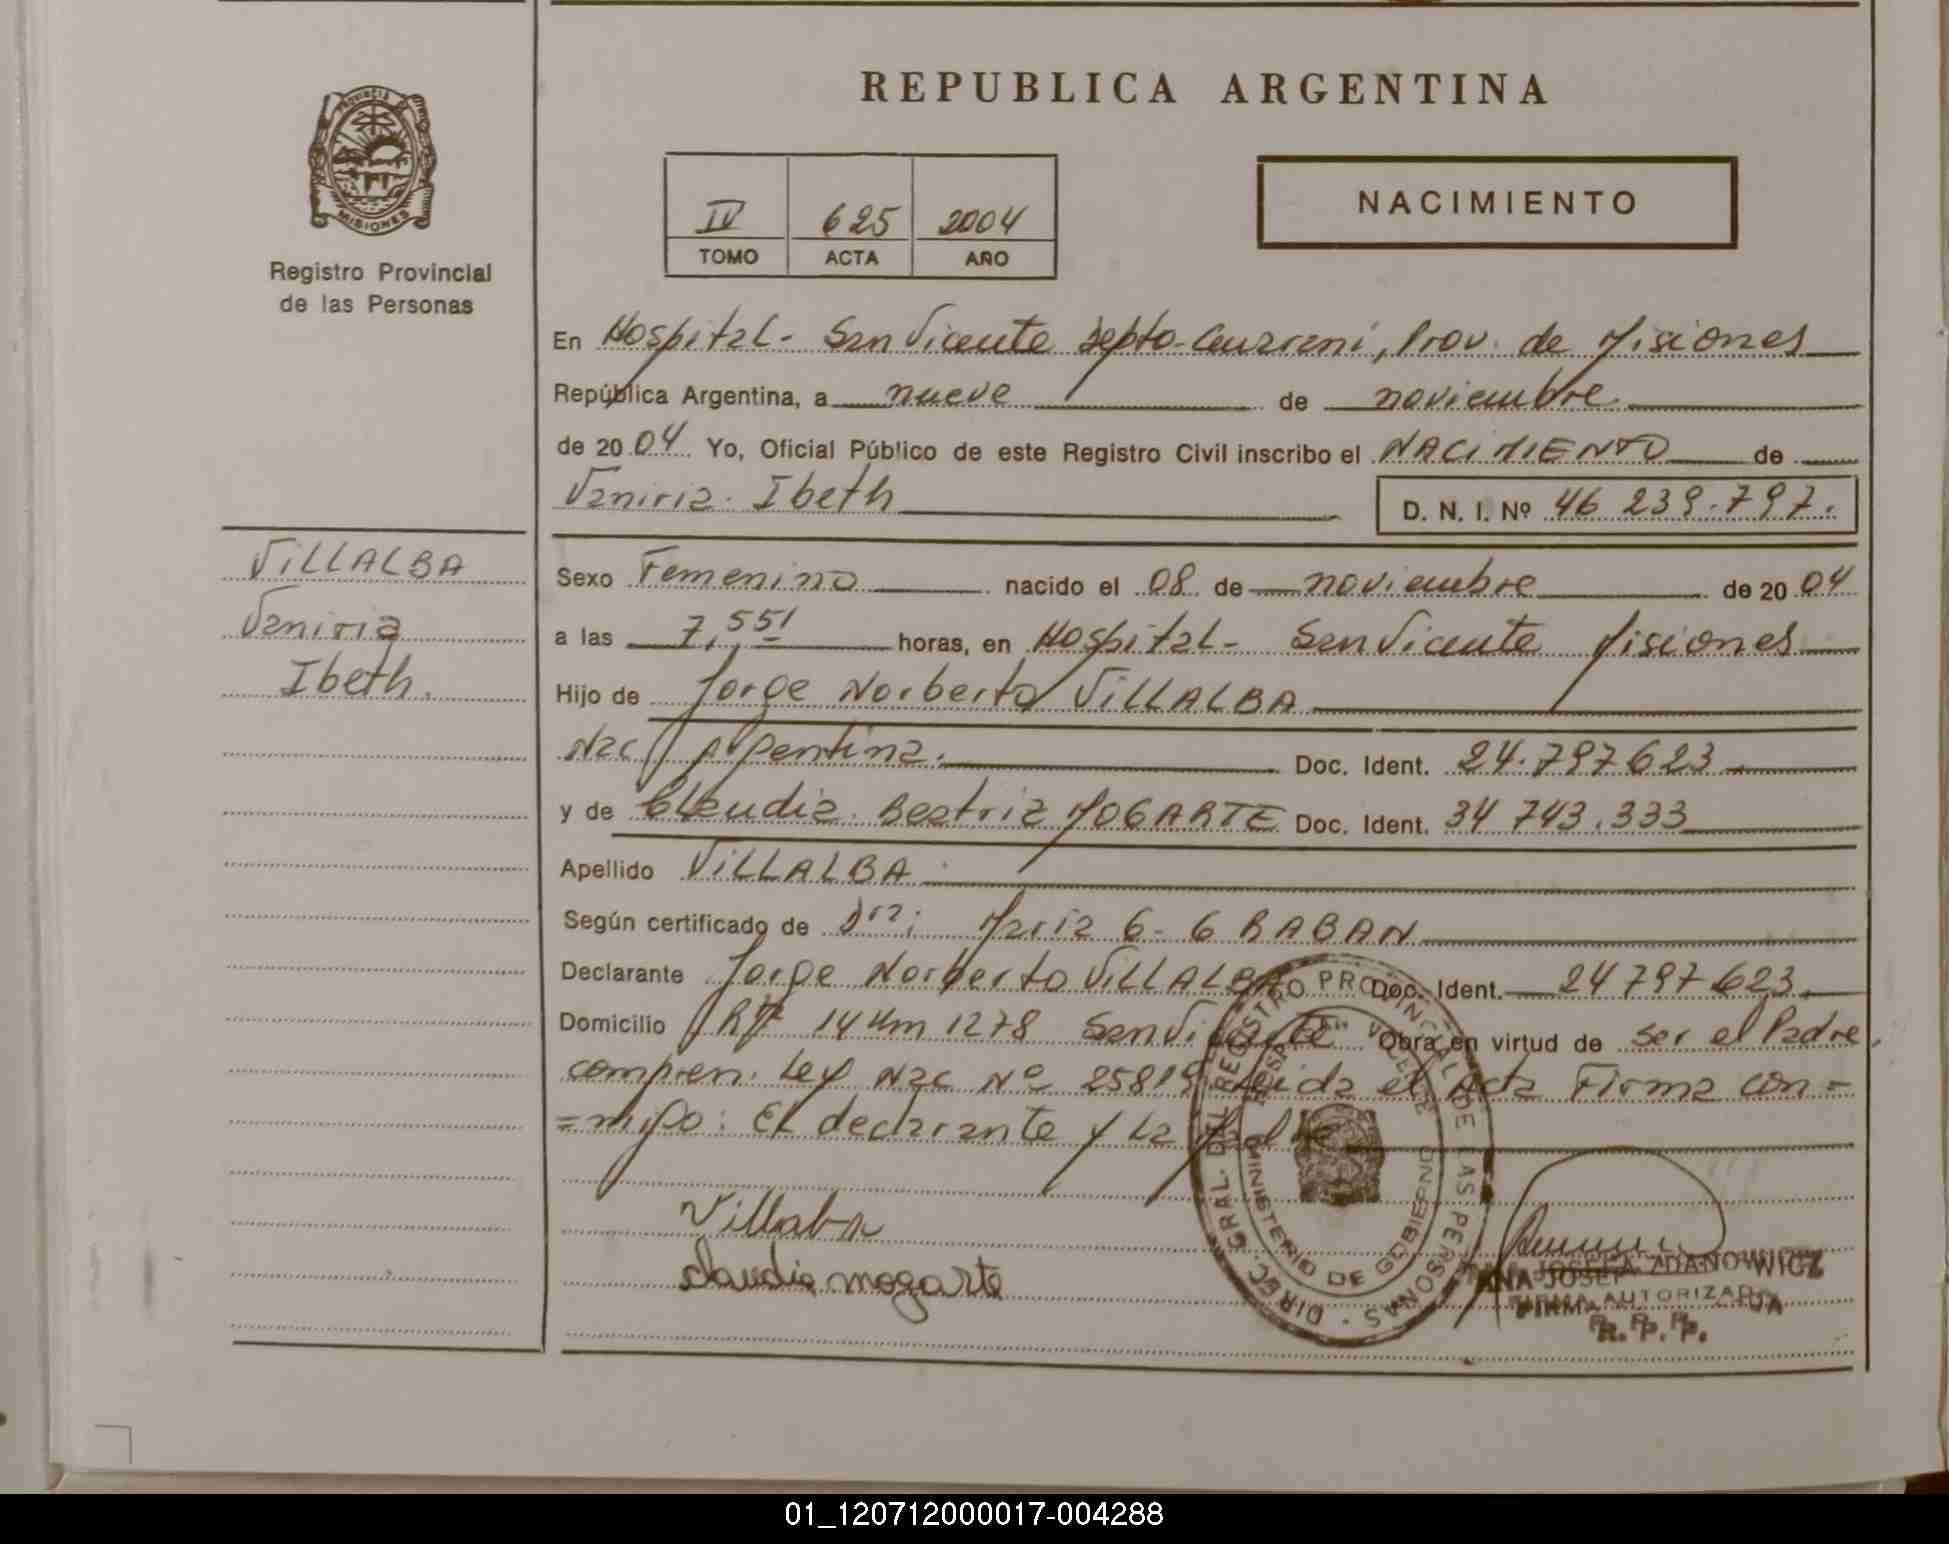 REPUBLICA ARGENTINA
PROVINCIA
MISIONES
Registro Provincial
de las Personas
IV 625 2004
TOMO ACTA AÑO
NACIMIENTO
En Hospital - San Vicente Depto - Guarani, Prov. de Misiones
República Argentina, a nueve de noviembre
de 20 04 Yo, Oficial Público de este Registro Civil inscribo el NACIMIENTO de
Vaniria Ibeth D. N. I. Nº 46 239.797.
VILLALBA
Vaniria
Ibeth.
Sexo Femenino nacido el 08 de noviembre de 20 04
a las 7,55' horas, en Hospital - San Vicente Misiones
Hijo de Jorge Norberto VILLALBA
Nac Argentina. Doc. Ident. 24.797623
y de Claudia Beatriz MOGARTE Doc. Ident. 34 743.333
Apellido VILLALBA
Según certificado de Dra: Maria G. GRABAN
Declarante Jorge Norberto VILLALBA Doc. Ident. 24797623.
Domicilio Rta 14 Km 1278 San Vicente Obra en virtud de Ser el Padre,
compren. Ley Nac Nº 25819 Leida el Acta Firma con=
=migo: El declarante y La Madre
Villalba
claudia mogarte
DIREC. GRAL. DEL REGISTRO PROVINCIAL DE LAS PERSONAS
MINISTERIO DE GOBIERNO
ANA JOSEFA ZDANOWICZ
FIRMA AUTORIZADA
R. P. P.
01_120712000017-004288